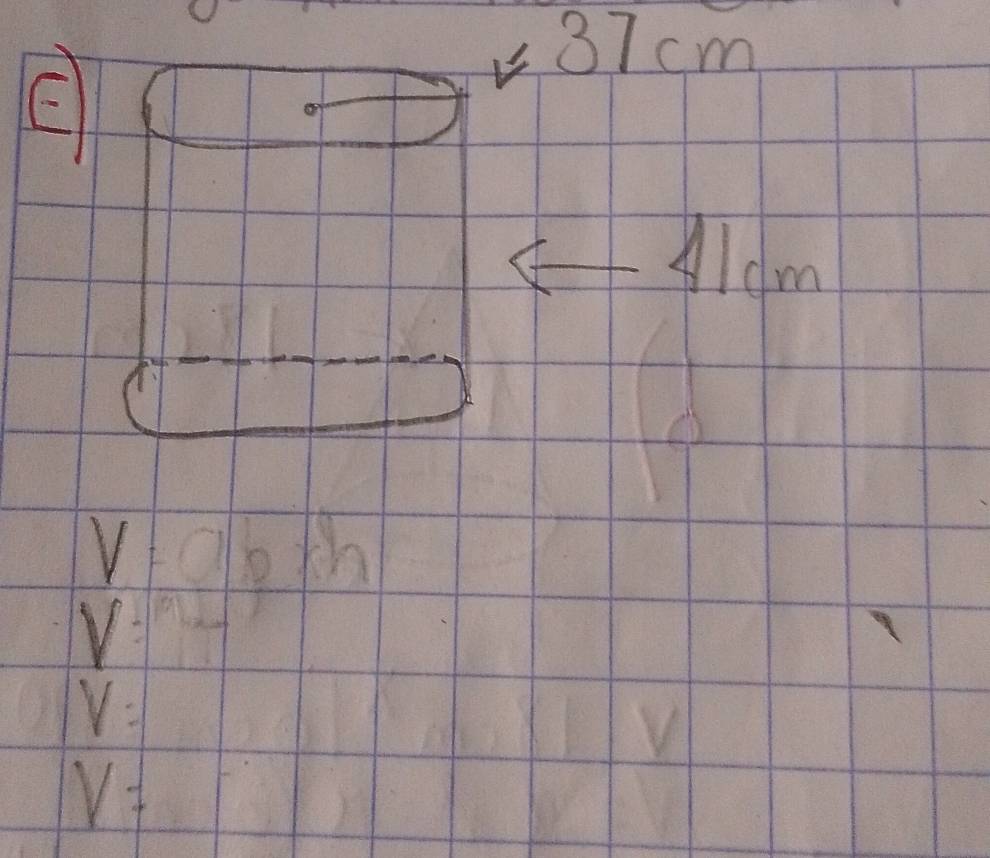 37 cm
E)
41cm
V = ab x h
V =
V =
V =